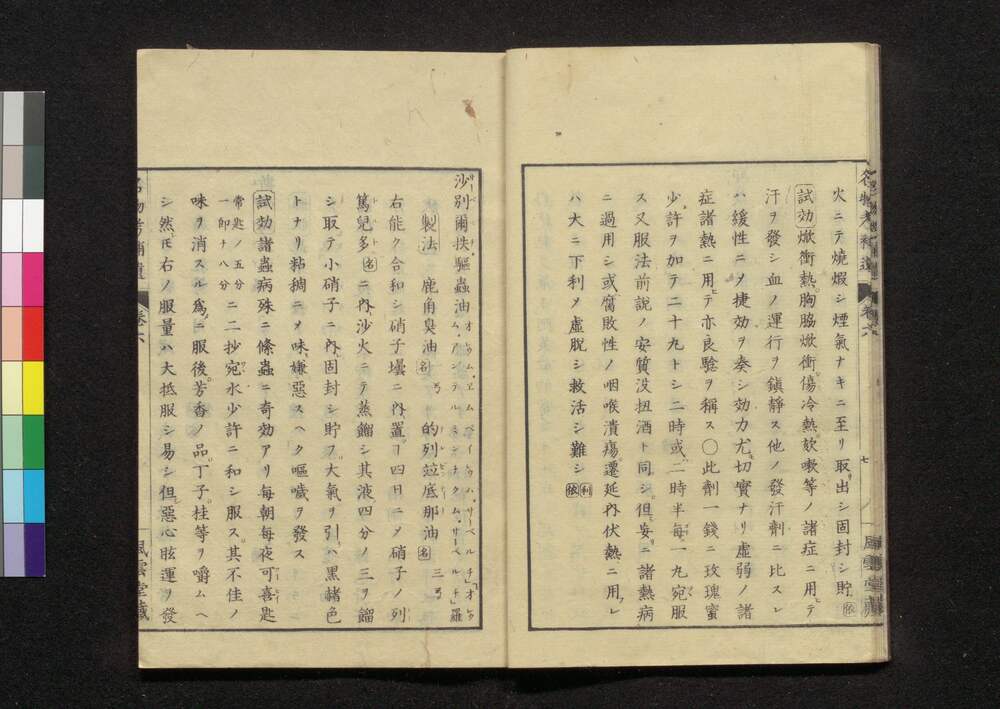 火ニテ燒煆シ煙氣ナキニ至リ取出シ固封シ貯フ 依
試効 焮衝熱胸脇焮衝傷冷熱欬嗽等ノ諸症ニ用ヒテ
汗ヲ發シ血ノ運行ヲ鎭靜ス他ノ發汗劑ニ比スレ
ハ緩性ニメ捷効ヲ奏シ効力尤切實ナリ虛弱ノ諸
症諸熱ニ用ヒテ亦良驗ヲ稱ス〇此劑一錢ニ玫瑰蜜
少許ヲ加テ二十九トシ二時或ハ二時半每一丸宛服
ス又服法前說ノ安質沒扭酒ト同シ但妄ニ諸熱病
ニ過用シ或腐敗性ノ咽喉潰瘍遷延內伏熱ニ用レ
ハ大ニ下利メ虛脫シ救活シ難シ 利 依
七
風雲堂藏
沙別爾抶驅蟲油
製法 鹿角臭油 名 的列並底那油 名
右能ク合和シ硝子壜ニ內置ヿ四日ニメ硝子ノ列
篤兒多 名 ニ內沙火ニテ蒸餾シ其液四分ノ三ヲ餾
シ取テ小硝子ニ內固封シ貯フ大氣ヲ引ハ黑赭色
トナリ粘稠ニメ味嫌惡スヘク嘔噦ヲ發ス
試効 諸蟲病殊ニ條蟲ニ奇効アリ每朝每夜可喜匙
常匙ノ五分一卽十八分 ニ二抄宛水少許ニ和シ服ス其不佳ノ
味ヲ消スル爲ニ服後芳香ノ品丁子桂等ヲ嚼ムヘ
シ然モ右ノ服量ハ大抵服シ易シ但惡心眩運ヲ發
名物考補遺
卷六
風雲堂藏